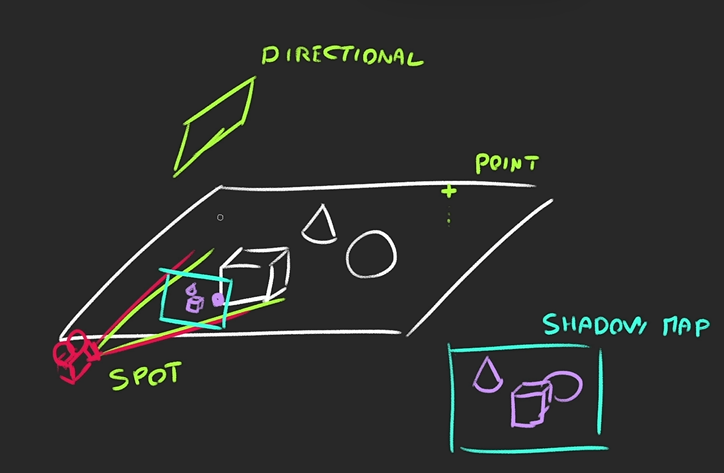 DIRECTIONAL
POINT
SPOT
SHADOW MAP